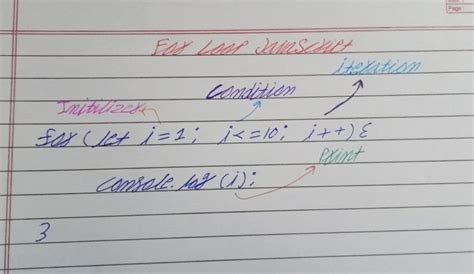 For Loop JavaScript
iteration
condition
Initilizer
for ( let i=1; i<=10; i++) {
Print
console.log (i);
3